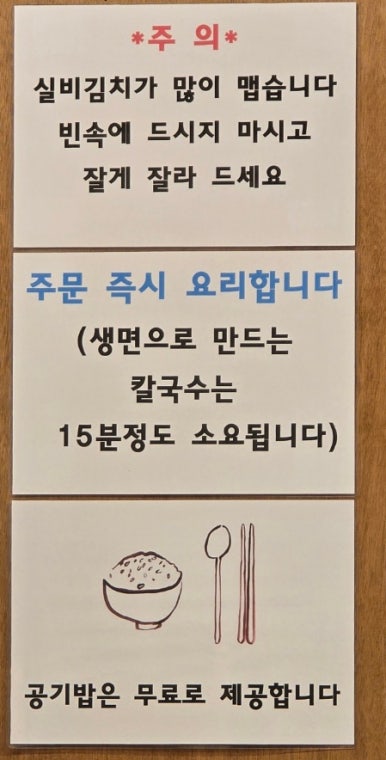 *주 의*
실비김치가 많이 맵습니다
빈속에 드시지 마시고
잘게 잘라 드세요
주문 즉시 요리합니다
(생면으로 만드는
칼국수는
15분정도 소요됩니다)
공기밥은 무료로 제공합니다